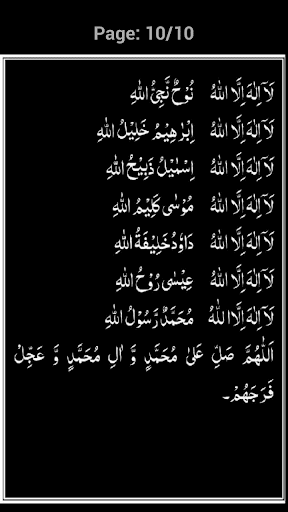 Page: 10/10
لَآ اِلٰهَ اِلَّا اللهُ نُوْحٌ نَّجِیُّ اللهِ
لَآ اِلٰهَ اِلَّا اللهُ اِبْرٰهِیْمُ خَلِیْلُ اللهِ
لَآ اِلٰهَ اِلَّا اللهُ اِسْمٰعِیْلُ ذَبِیْحُ اللهِ
لَآ اِلٰهَ اِلَّا اللهُ مُوْسٰی كَلِیْمُ اللهِ
لَآ اِلٰهَ اِلَّا اللهُ دَاوٗدُ خَلِیْفَةُ اللهِ
لَآ اِلٰهَ اِلَّا اللهُ عِیْسٰی رُوْحُ اللهِ
لَآ اِلٰهَ اِلَّا اللهُ مُحَمَّدٌ رَّسُوْلُ اللهِ
اَللّٰهُمَّ صَلِّ عَلٰی مُحَمَّدٍ وَّ اٰلِ مُحَمَّدٍ وَّ عَجِّلْ
فَرَجَهُمْ۔